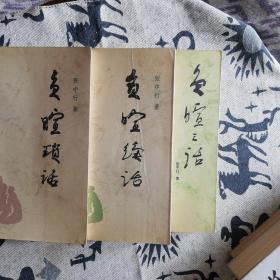 负暄琐话
张中行 著
负暄续话
张中行 著
负暄三话